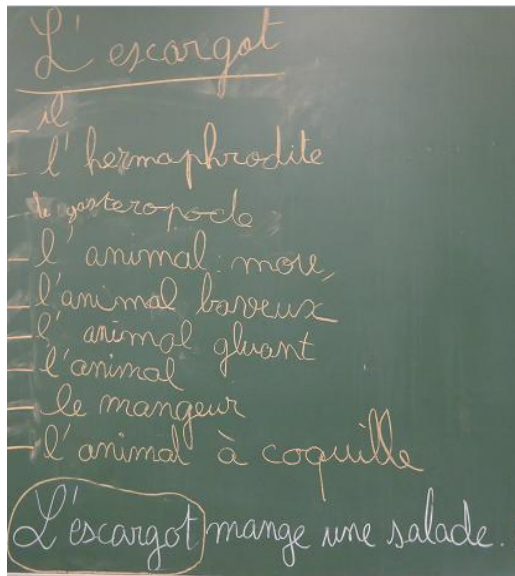 L'escargot
- il
- l'hermaphrodite
- le gasteropode
- l'animal mou,
- l'animal baveux
- l'animal gluant
- l'animal
- le mangeur
- l'animal à coquille
L'escargot mange une salade.